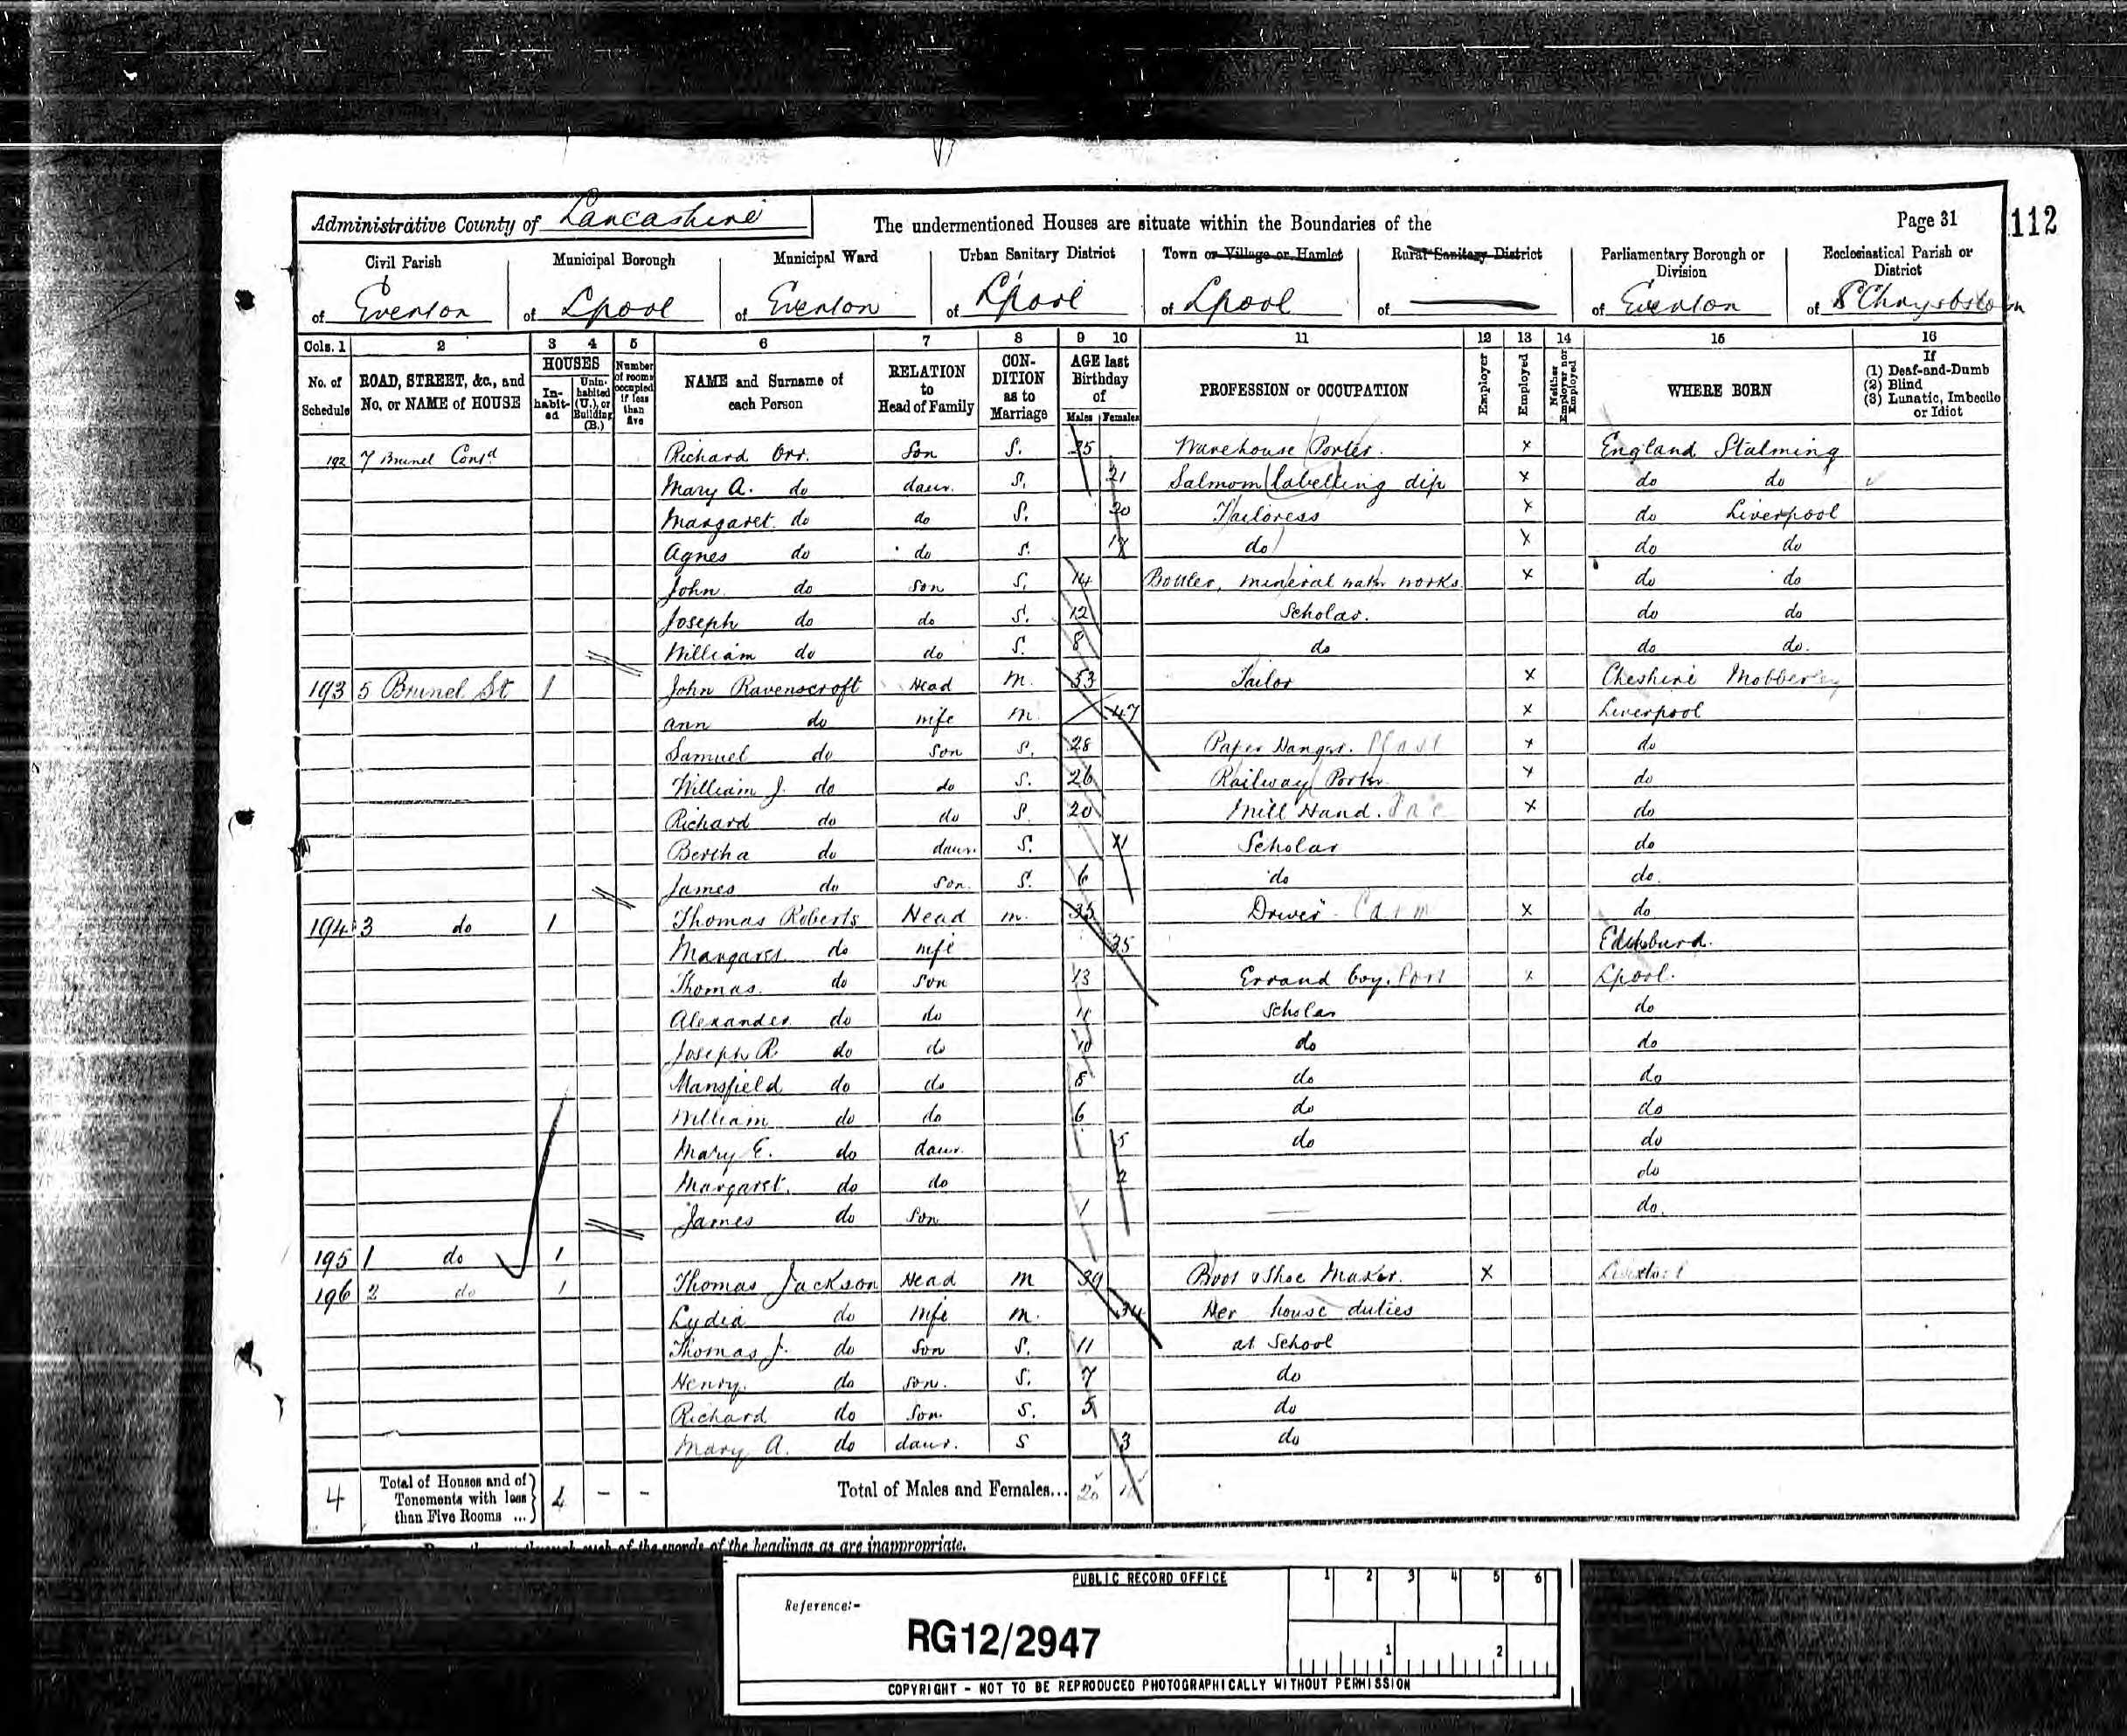 Administrative County of Lancashire
The undermentioned Houses are situate within the Boundaries of the
Page 31
112
Civil Parish of Everton
Municipal Borough of Lpool
Municipal Ward of Everton
Urban Sanitary District of L'pool
Town or Village or Hamlet of Lpool
Rural Sanitary District of
Parliamentary Borough or Division of Everton
Ecclesiastical Parish or District of
Cols. 1 2 3 4 5 6 7 8 9 10 11 12 13 14 15 16
No. of Schedule
ROAD, STREET, &c., and No. or NAME of HOUSE
HOUSES
In-habit-ed
Unin-habited (U.), or Building (B.)
Number of rooms occupied if less than five
NAME and Surname of each Person
RELATION to Head of Family
CON-DITION as to Marriage
AGE last Birthday of
Males Females
PROFESSION or OCCUPATION
Employer
Employed
Neither Employer nor Employed
WHERE BORN
If
(1) Deaf-and-Dumb
(2) Blind
(3) Lunatic, Imbecile or Idiot
192 7 Brunel Contd Richard Orr. Son S. 25 Warehouse Porter. x England Stalming
Mary A. do daur. S. 21 Salmom labelling dip x do do
Margaret do do S. 20 Tailoress x do Liverpool
Agnes do do S. do x do do
John do son S. 14 Bottler, mineral water works x do do
Joseph do do S. 12 Scholar. do do
William do do S. 8 do do do.
193 5 Brunel St 1 John Ravenscroft Head M. 53 Tailor x Cheshire Mobberley
Ann do wife M. 47 x Liverpool
Samuel do Son S. 28 Paper Hanger. x do
William J. do do S. 26 Railway Porter x do
Richard do do S. 20 Mill Hand. x do
Bertha do daur. S. 11 Scholar do
James do Son. S. 6 do do.
194 3 do 1 Thomas Roberts Head m. 35 Driver x do
Margaret do wife 35
Thomas. do Son 13 Errand boy. x Lpool.
Alexander do do 11 Scholar do
Joseph R. do do 10 do do
Mansfield do do 8 do do
William do do 6 do do
Mary E. do daur. 5 do do
Margaret. do do 2 do
James do Son 1 do.
195 1 do 1
196 2 do 1 Thomas Jackson Head M 39 Boot & Shoe Maker. X
Lydia do Wife M. 34 Her house duties
Thomas J. do Son S. 11 at School
Henry. do son. S. 7 do
Richard do Son. S. 5 do
Mary A. do daur. S 3 do
4 Total of Houses and of Tenements with less than Five Rooms ... 4 - -
Total of Males and Females... 20
of the words of the headings as are inappropriate.
PUBLIC RECORD OFFICE
1 2 3 4 5 6
Reference:-
RG12/2947
1 2
COPYRIGHT - NOT TO BE REPRODUCED PHOTOGRAPHICALLY WITHOUT PERMISSION